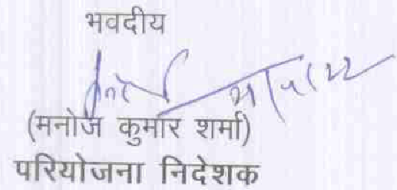 भवदीय
(मनोज कुमार शर्मा)
परियोजना निदेशक